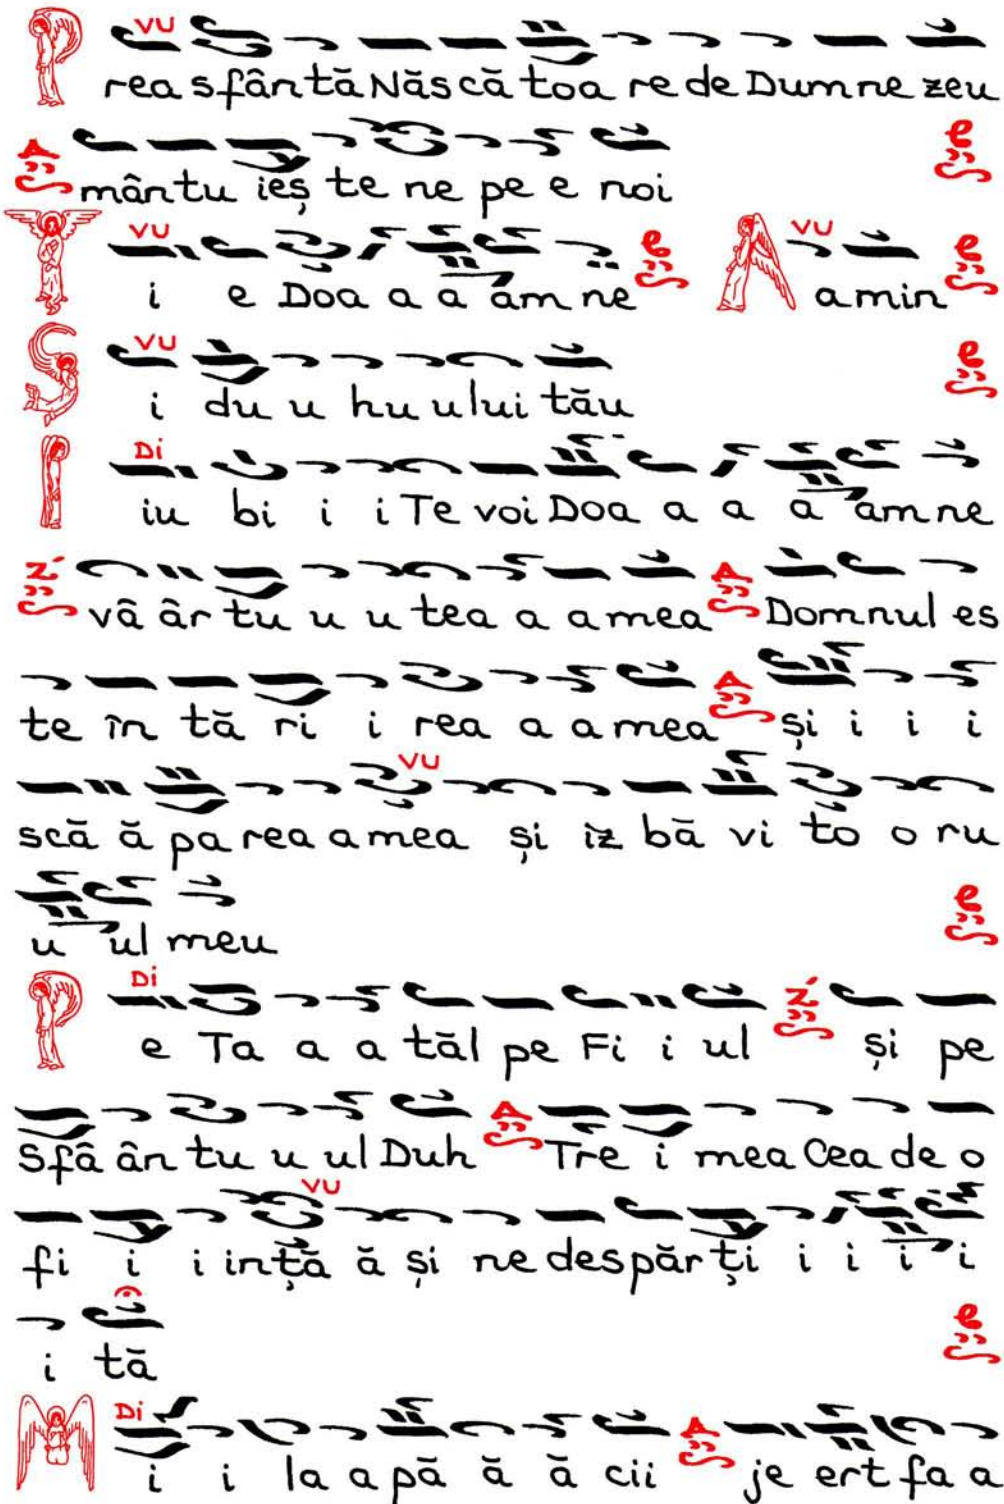 VU
Prea sfântă Născă toa re de Dum ne zeu
mân tu ieș te ne pe e noi
VU VU
Ț i e Doa a a am ne A amin
VU
Ș i du u hu ului tău
Di
I iu bi i i Te voi Doa a a a am ne
vâ âr tu u u tea a a mea Domnul es
te în tă ri i rea a a mea și i i i
VU
scă ă pa rea a mea și iz bă vi to o ru
u ul meu
Di
P e Ta a a tăl pe Fi i ul și pe
Sfâ ân tu u ul Duh Tre i mea Cea de o
VU
fi i i ință ă și ne despăr ți i i i i
i tă
Di
M i i la a pă ă ă cii je ert fa a